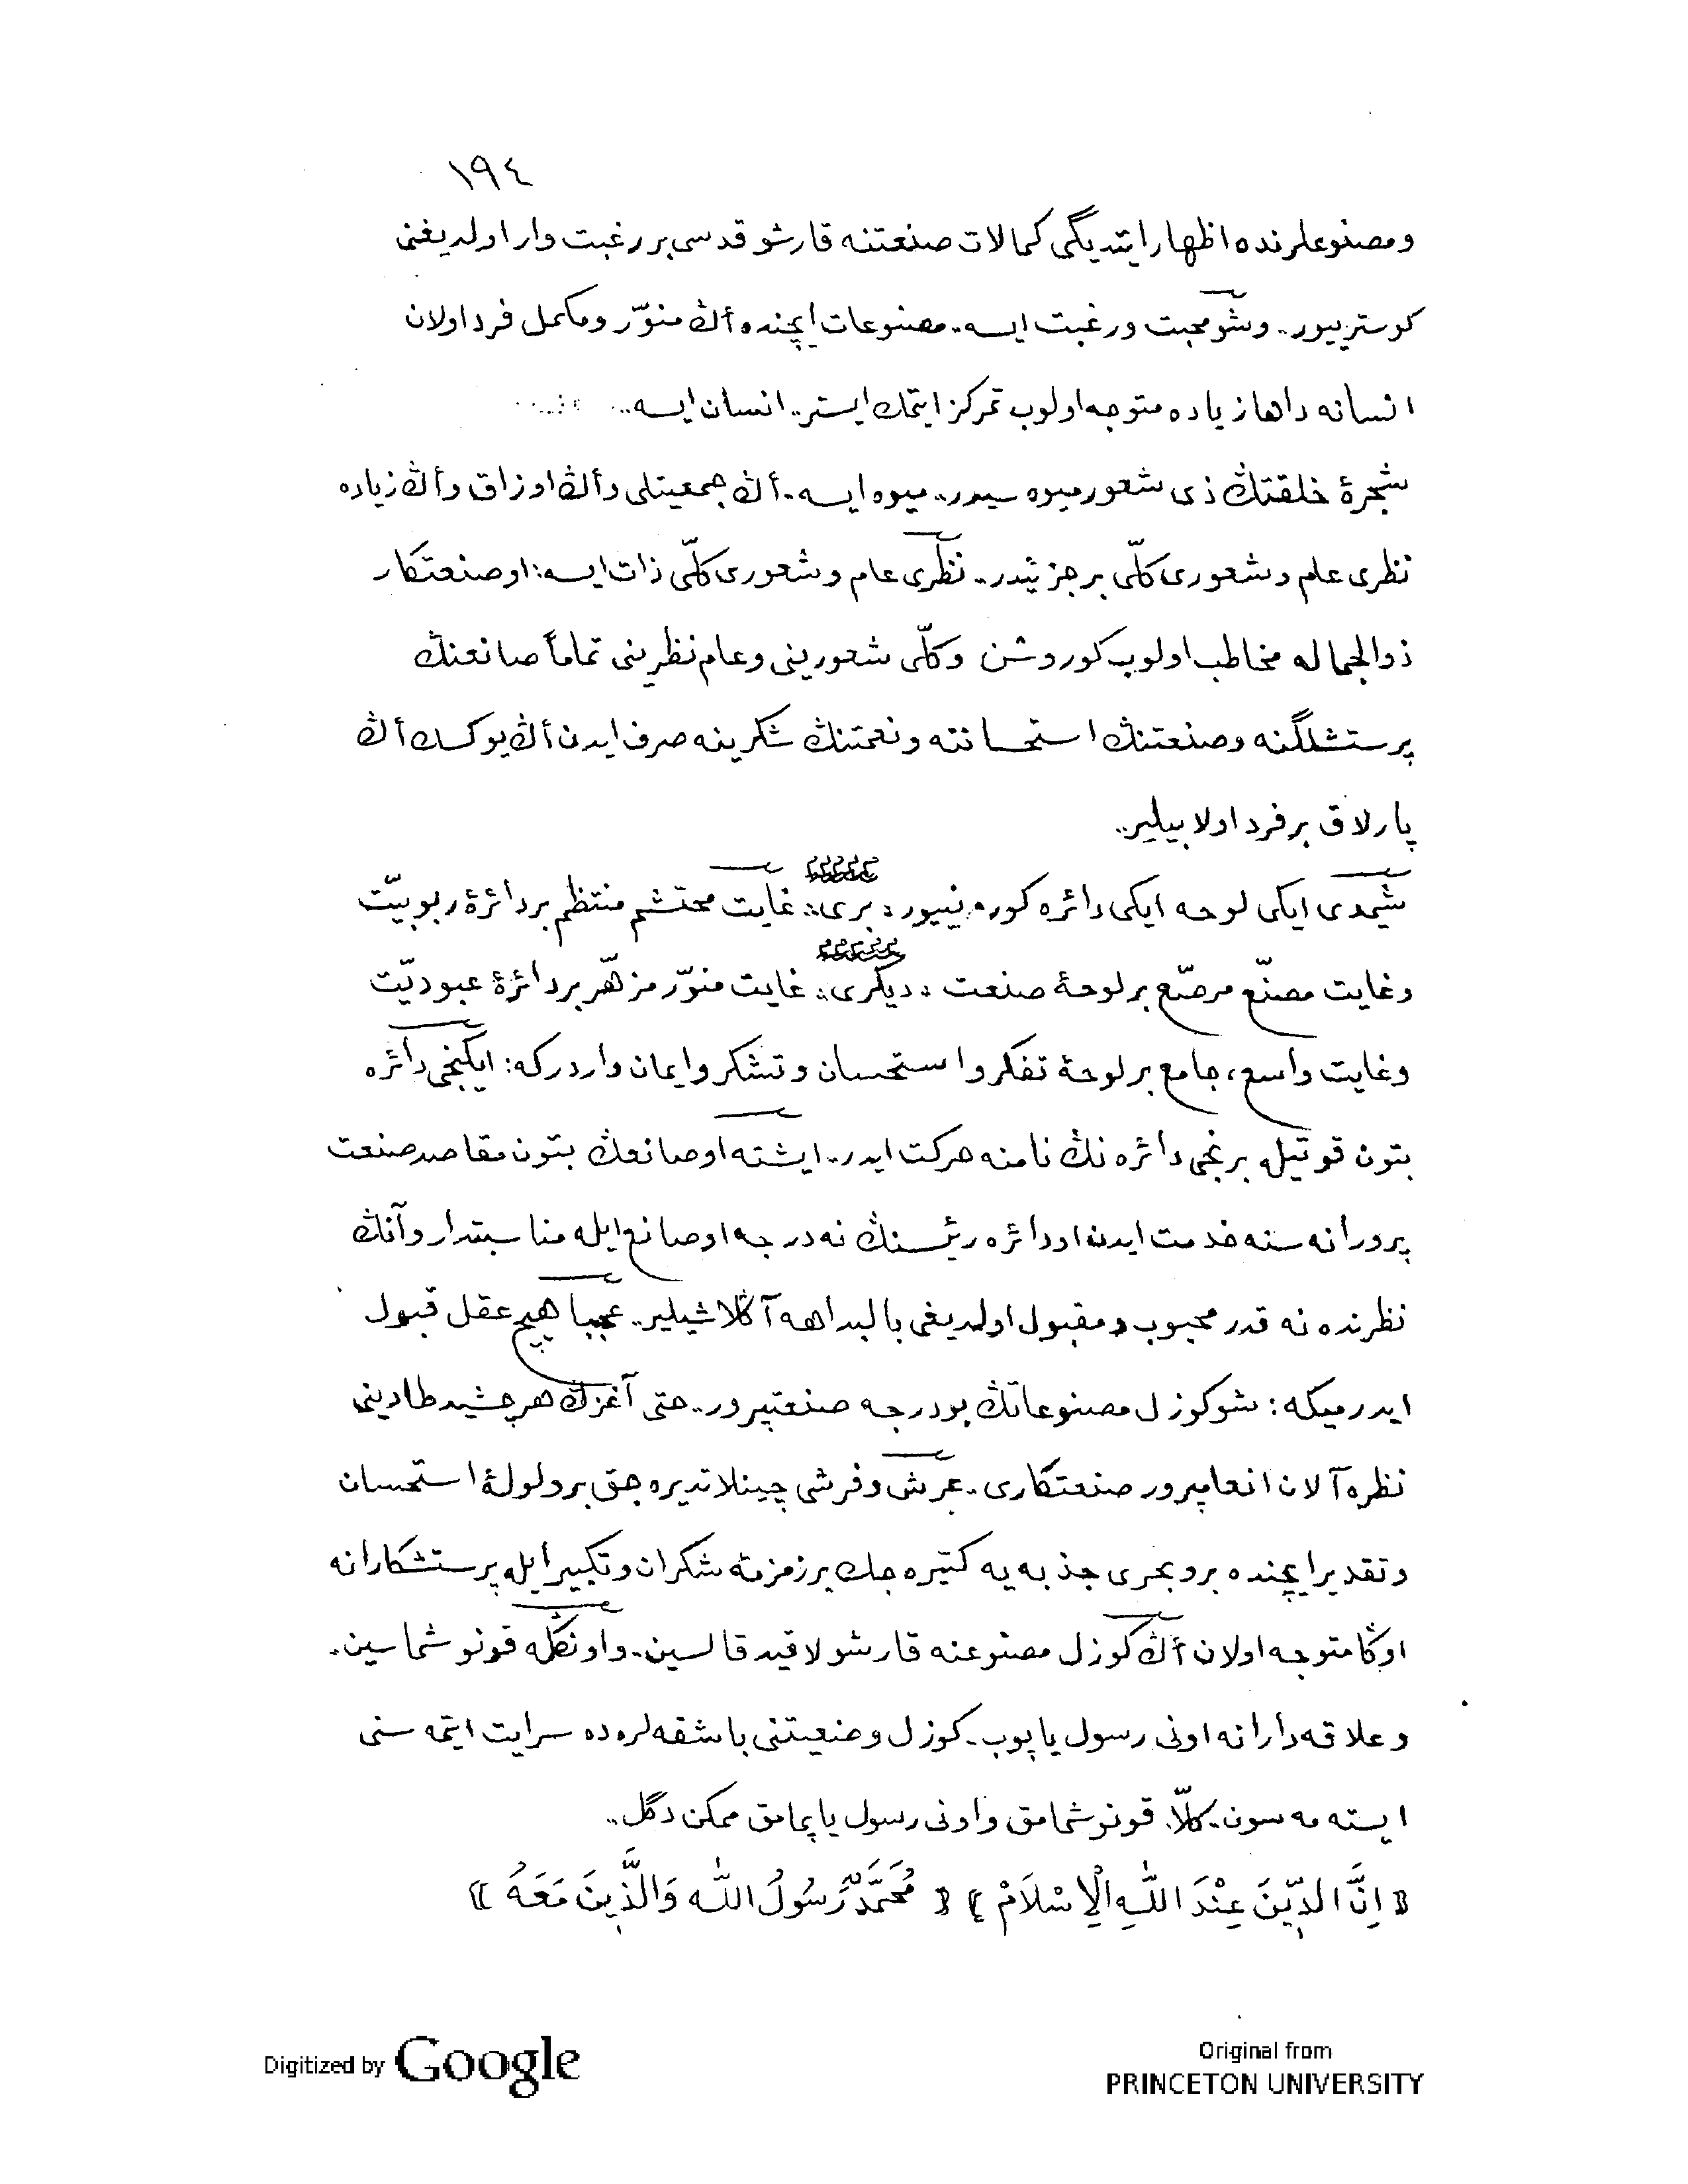 ١٩٤
ومصنوعلرنده اظهار ايتديگى كمالات صنعتنه قارشو قدسى بر رغبت وار اولديغنى
كوستريیور.. وشو محبت ورغبت ايسه. مصنوعات ايچنده أڭ منوّر ومكمل فرد اولان
انسانه داها زياده متوجه اولوب تمركز ايتمك ايستر.. انسان ايسه..
شجرۀ خلقتڭ ذى شعور ميوه سيدر.. ميوه ايسه. أڭ جمعيتلى وأڭ اوزاق وأڭ زياده
نظرى عام وشعورى كلّى بر جزئيدر.. نظرى عام وشعورى كلّى ذات ايسه: او صنعتكار
ذو الجماله مخاطب اولوب كوروشن وكلّى شعورينى وعام نظرينى تماماً صانعنڭ
پرستشلگنه وصنعتنڭ استحساننه ونعمتنڭ شكرينه صرف ايدن أڭ يوكسك أڭ
پارلاق بر فرد اولا بيلير..
شيمدى ايكى لوحه ايكى دائره كورونيیور: برى: غايت محتشم منتظم بر دائرۀ ربوبيّت
وغايت مصنّع مرصّع بر لوحۀ صنعت. ديكرى: غايت منوّر مزهّر بر دائرۀ عبوديّت
وغايت واسع، جامع بر لوحۀ تفكر واستحسان وتشكر وايمان واردركه: ايكنجى دائره
بتون قوتيله برنجى دائره نڭ نامنه حركت ايدر.. ايشته او صانعڭ بتون مقاصد صنعت
پرورانه سنه خدمت ايدن او دائره رئيسنڭ نه درجه او صانع ايله مناسبتدار وآنڭ
نظرنده نه قدر محبوب ومقبول اولديغى بالبداهه آڭلاشيلير.. عجبا هيچ عقل قبول
ايدرميكه: شو كوزل مصنوعاتڭ بو درجه صنعتپرور.. حتى آغزڭ هر چشيد طادينى
نظره آلان انعامپرور صنعتكارى. عرش وفرشى چينلاتديره جق بر ولولۀ استحسان
وتقدير ايچنده بر وبحرى جذبه يه كتيره جك بر زمزمۀ شكران وتكبير ايله پرستشكارانه
اوڭا متوجه اولان أڭ كوزل مصنوعنه قارشو لاقيد قالسين. واونكله قونوشماسين.
وعلاقه دارانه اونى رسول ياپوب. كوزل وضعيتنى باشقه لره ده سرايت ايتمه سنى
ايسته مه سون. كلّا. قونوشمامق واونى رسول ياپمامق ممكن دگل..
﴿ اِنَّ الدّ۪ينَ عِنْدَ اللّٰهِ الْاِسْلَامْ ﴾ ﴿ مُحَمَّدٌ رَسُولُ اللّٰه وَالَّذ۪ينَ مَعَهُ ﴾
Digitized by Google
Original from
PRINCETON UNIVERSITY